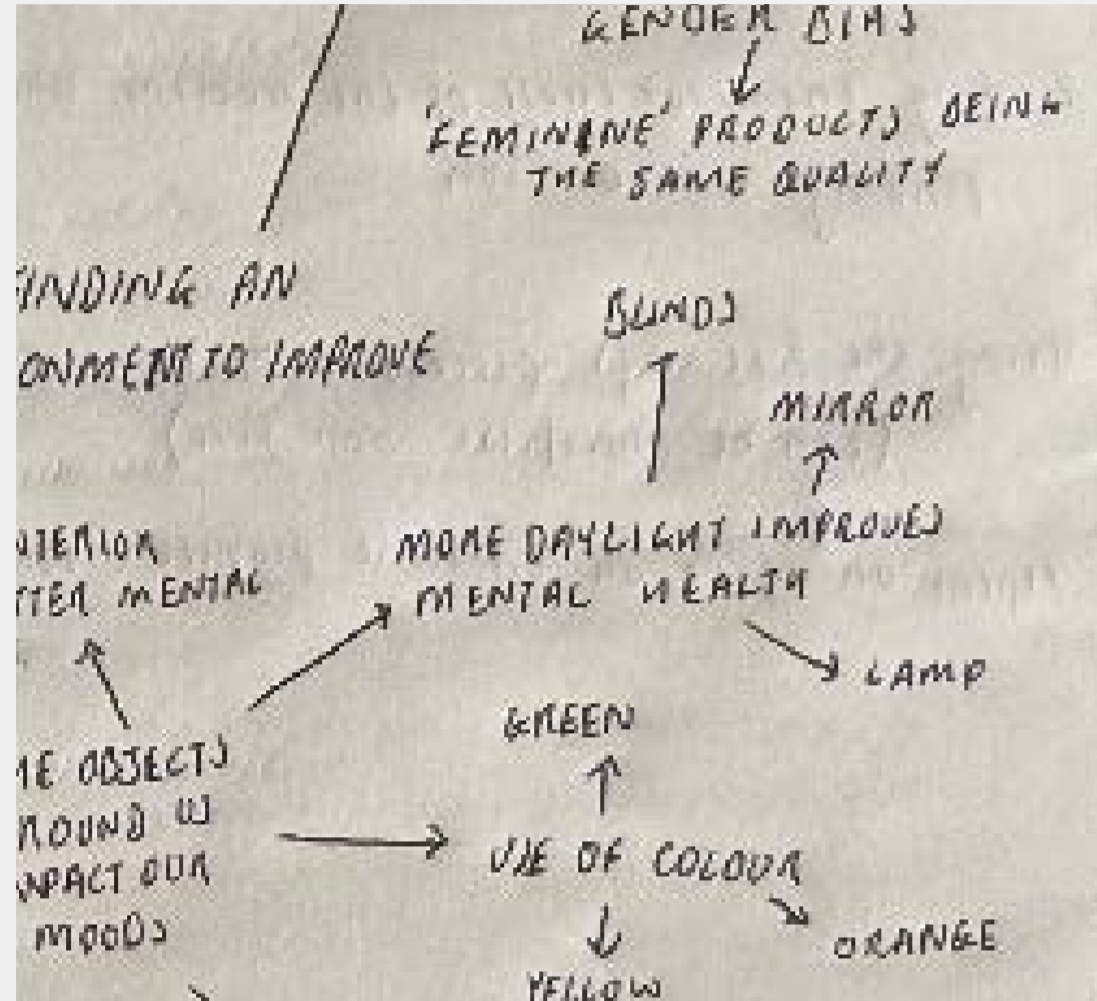 GENDER BIAS
'FEMININE' PRODUCTS BEING
THE SAME QUALITY
FINDING AN
ONMENT TO IMPROVE
BLINDS
MIRROR
MORE DAYLIGHT IMPROVES
MENTAL HEALTH
LAMP
NTERIOR
TTER MENTAL
HE OBJECTS
ROUND US
MPACT OUR
MOODS
GREEN
USE OF COLOUR
ORANGE
YELLOW